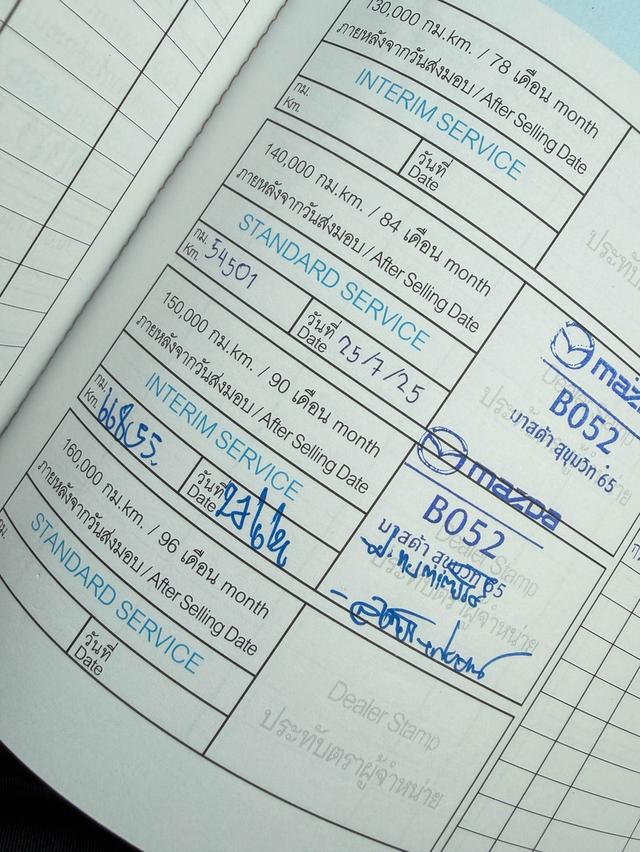 130,000 กม.km. / 78 เดือน month
ภายหลังจากวันส่งมอบ / After Selling Date
INTERIM SERVICE
กม.
Km.
วันที่
Date
140,000 กม.km. / 84 เดือน month
ภายหลังจากวันส่งมอบ / After Selling Date
STANDARD SERVICE
กม.
Km. 54501
วันที่
Date 25/7/25
mazda
B052
มาสด้า สุขุมวิท 65
150,000 กม.km. / 90 เดือน month
ภายหลังจากวันส่งมอบ / After Selling Date
INTERIM SERVICE
กม.
Km. 66855
วันที่
Date
mazda
B052
มาสด้า สุขุมวิท 65
Dealer Stamp
ประทับตราผู้จำหน่าย
160,000 กม.km. / 96 เดือน month
ภายหลังจากวันส่งมอบ / After Selling Date
STANDARD SERVICE
กม.
วันที่
Date
Dealer Stamp
ประทับตราผู้จำหน่าย